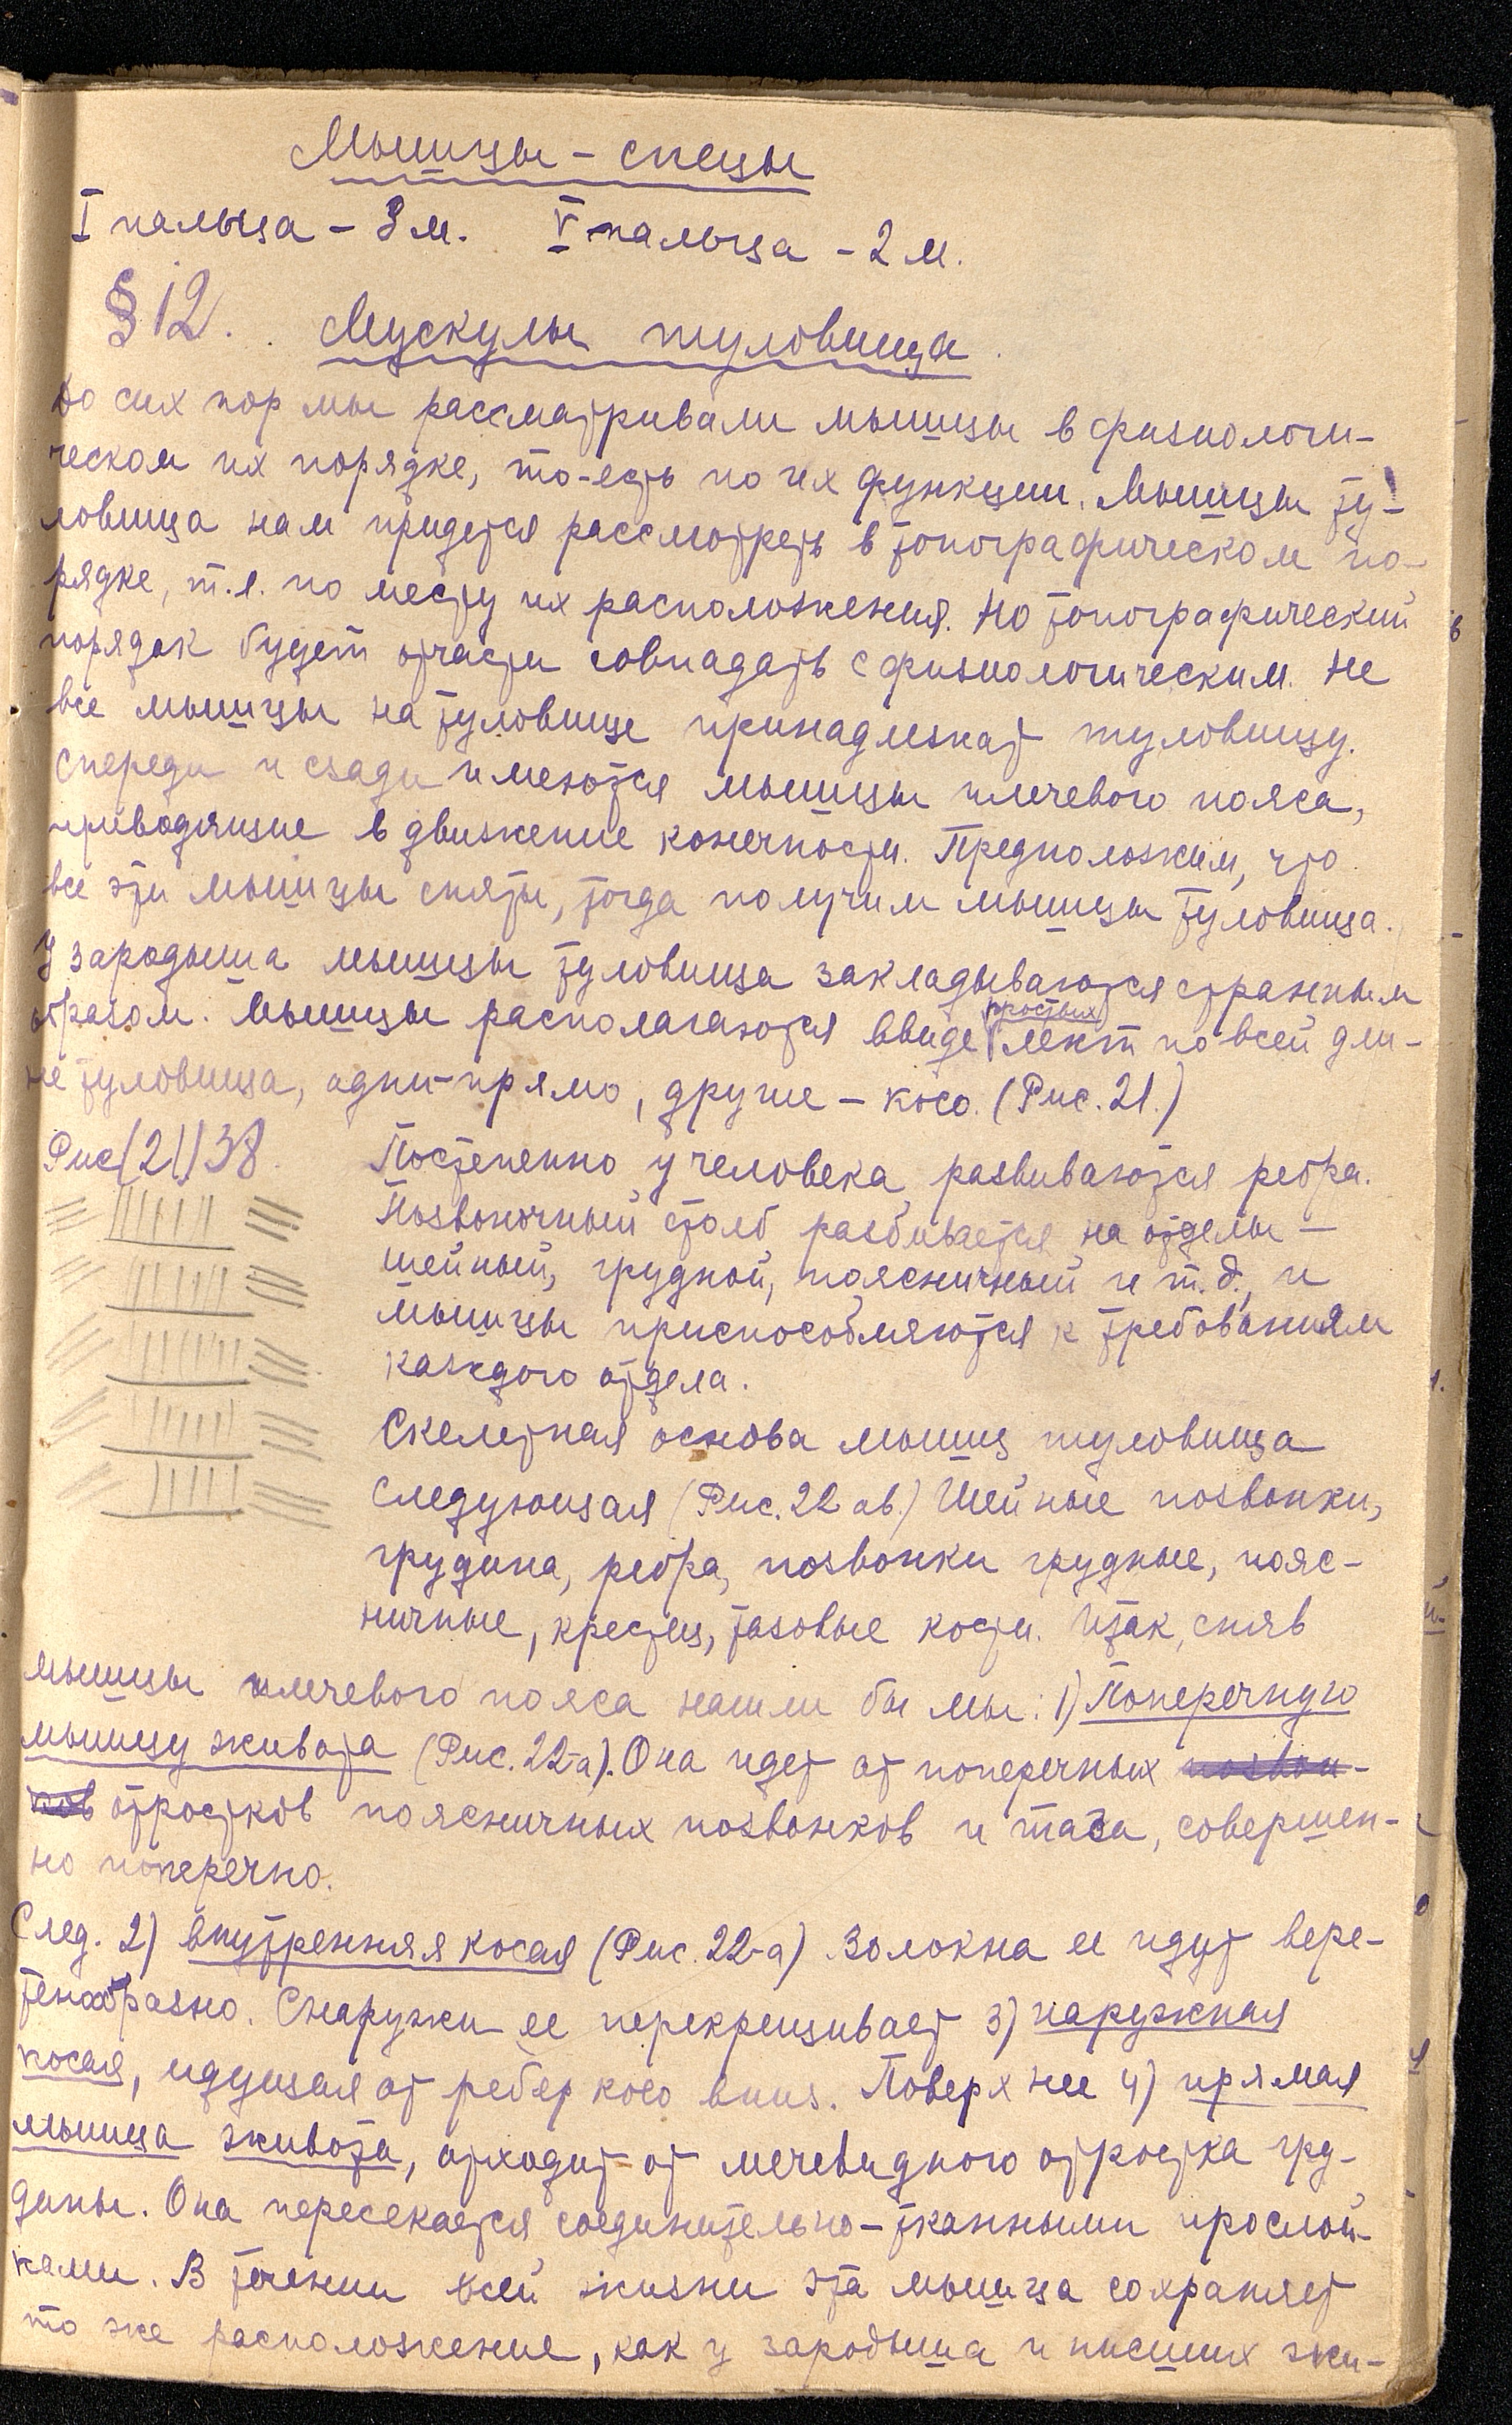 Мышцы - спецы
I пальца - 3 м. V пальца - 2 м.
§ 12. Мускулы туловища.
До сих пор мы рассматривали мышцы в физиологи-
ческом их порядке, то-есть по их функции. Мышцы ту-
ловища нам придется рассмотреть в топографическом по-
рядке, т.е. по месту их расположения. Но топографический
порядок будет отчасти совпадать с физиологическим. Не
все мышцы на туловище принадлежат туловищу.
Спереди и сзади имеются мышцы плечевого пояса,
приводящие в движение конечности. Предположим, что
все эти мышцы сняты, тогда получим мышцы туловища.
У зародыша мышцы туловища закладываются странным
образом. Мышцы располагаются ввиде простых лент по всей дли-
не туловища, одни - прямо, другие - косо. (Рис. 21.)
Рис (21) 38.
Постепенно у человека развиваются ребра.
Позвоночный столб разбивается на отделы -
шейный, грудной, поясничный и т.д., и
мышцы приспособляются к требованиям
каждого отдела.
Скелетная основа мышц туловища
следующая (Рис. 22 ав.) Шейные позвонки,
грудина, ребра, позвонки грудные, пояс-
ничные, крестец, тазовые кости. Итак, сняв
мышцы плечевого пояса нашли бы мы: 1) Поперечную
мышцу живота (Рис. 22-а). Она идет от поперечных позвон-
ков отростков поясничных позвонков и таза, совершен-
но поперечно.
След. 2) внутренняя косая (Рис. 22-а). Волокна ее идут вере-
тенообразно. Снаружи ее перекрещивает 3) наружная
косая, идущая от ребер косо вниз. Поверх нее 4) прямая
мышца живота, отходит от мечевидного отростка гру-
дины. Она пересекается соединительно-тканными прослой-
ками. В течении всей жизни эта мышца сохраняет
то же расположение, как у зародыша и низших жи-